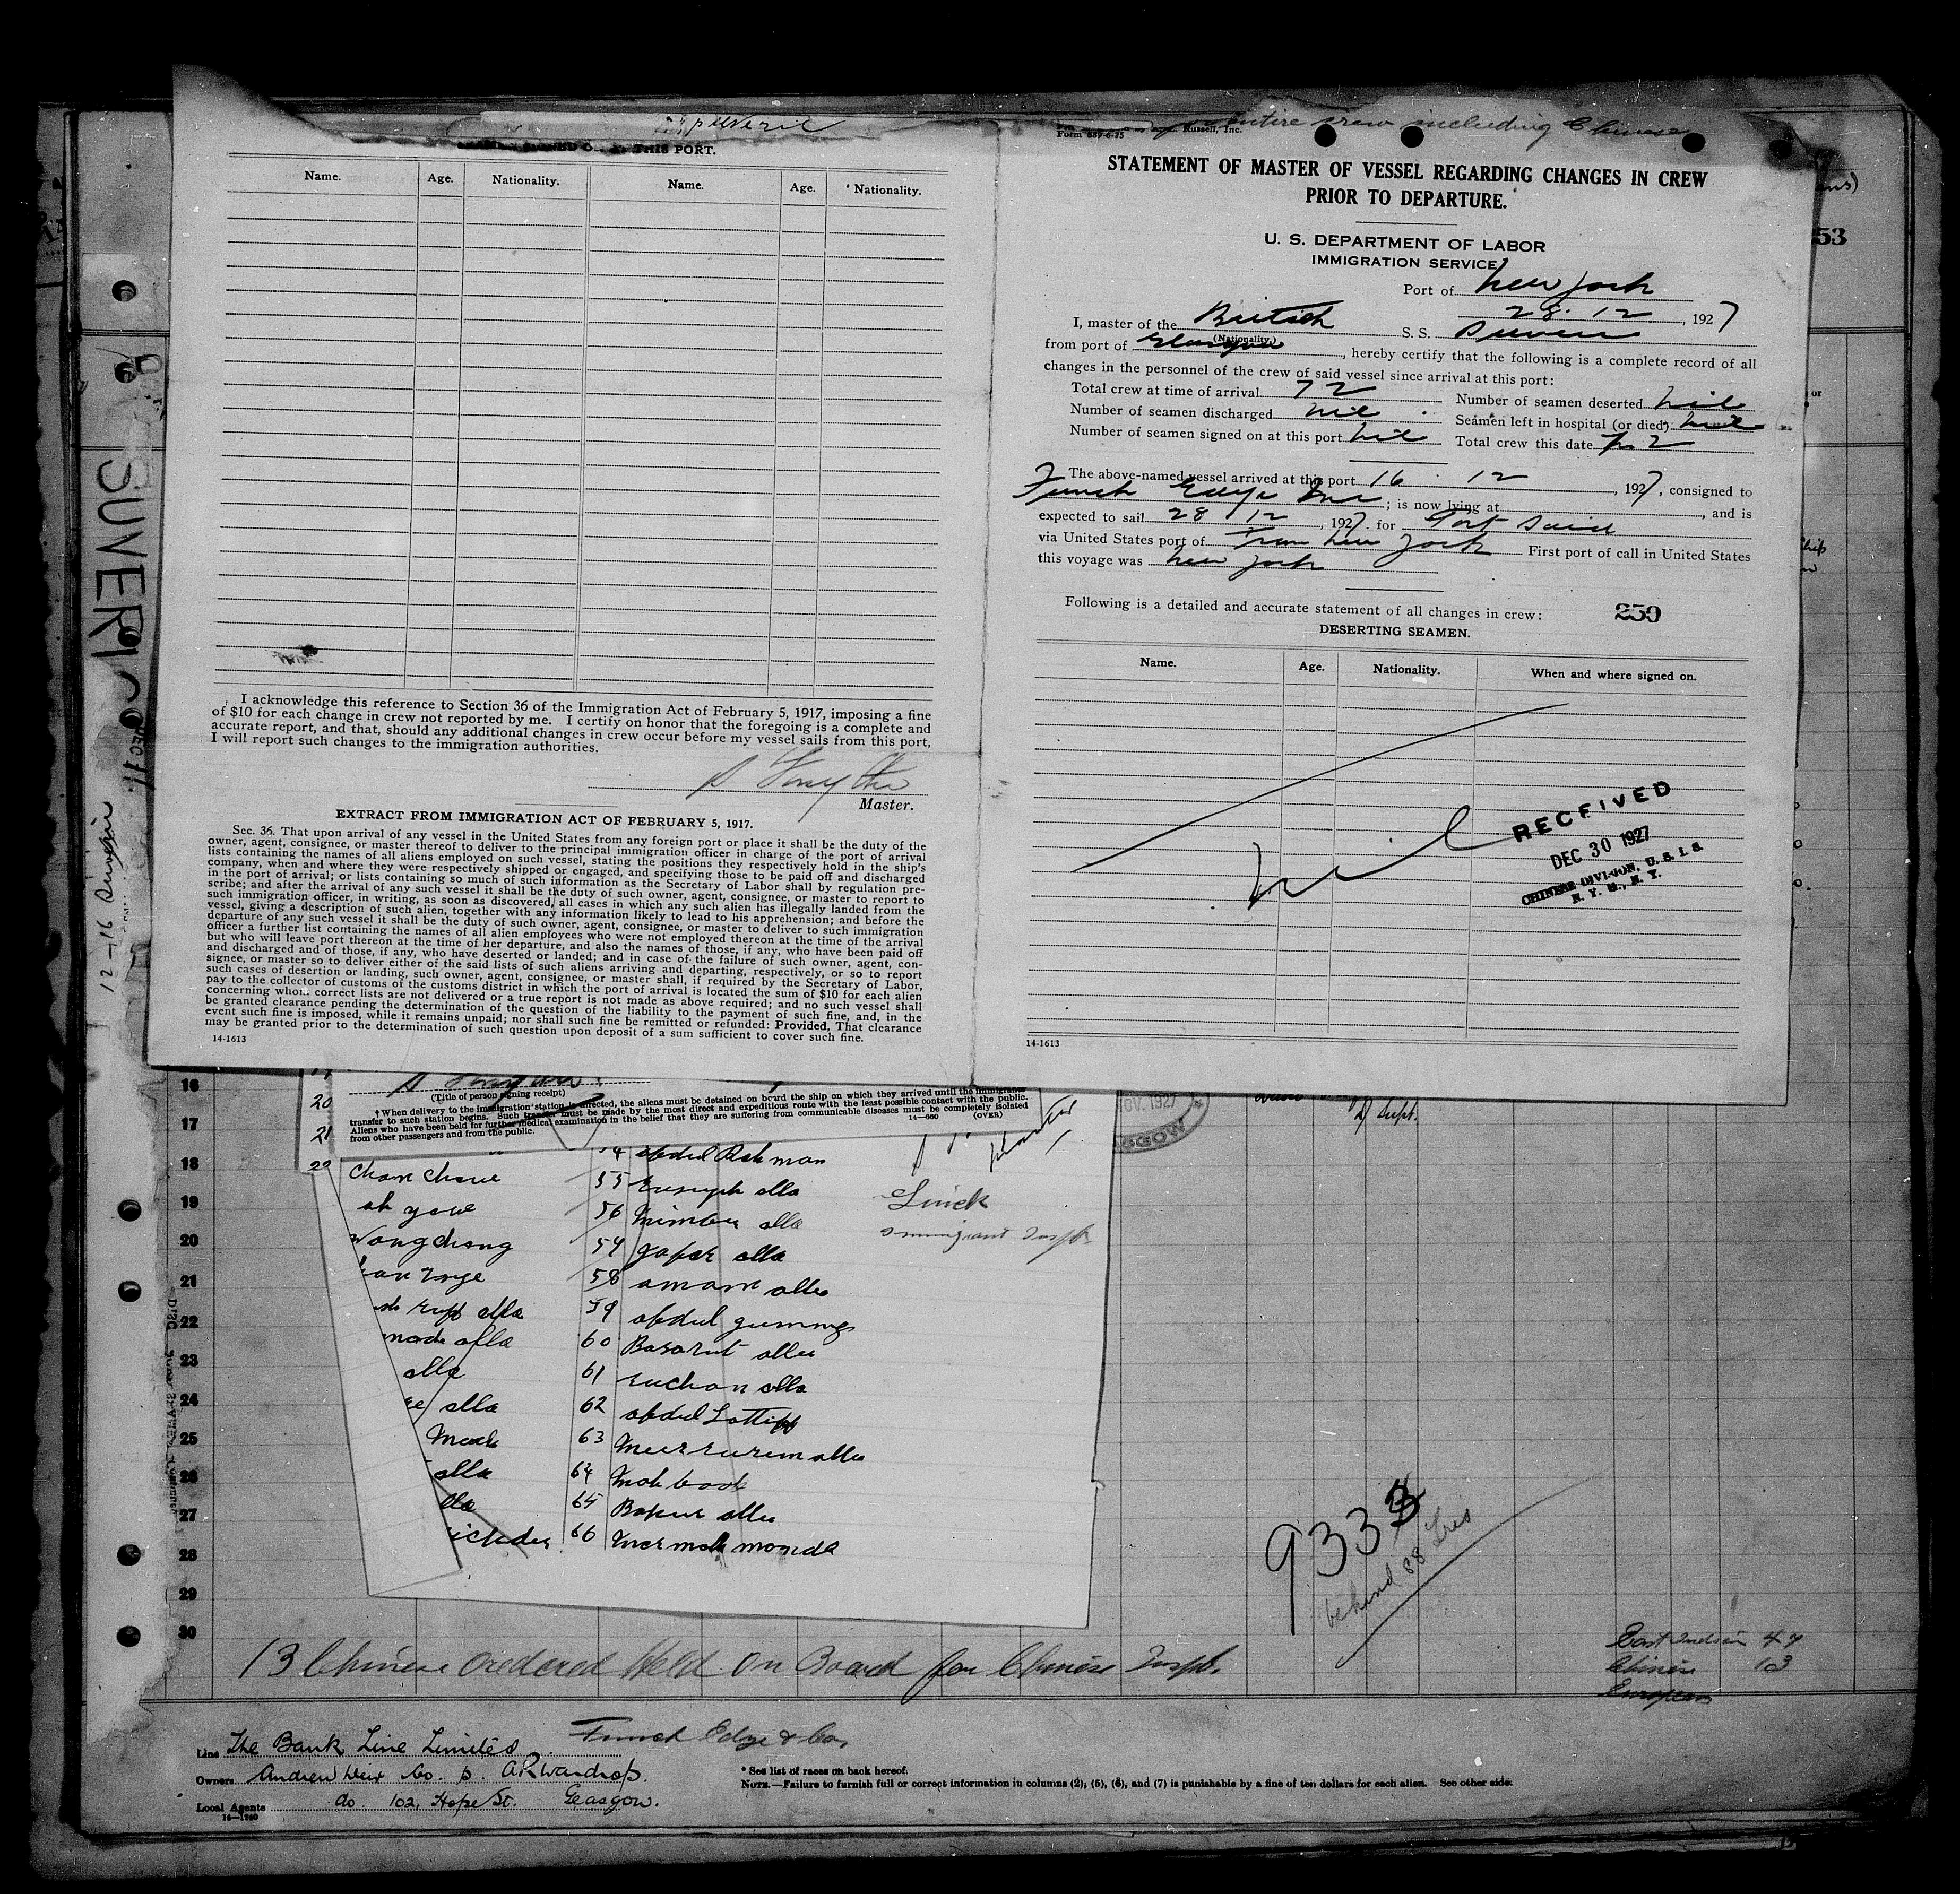 THIS PORT.
Name. Age. Nationality. Name. Age. Nationality.
I acknowledge this reference to Section 36 of the Immigration Act of February 5, 1917, imposing a fine
of $10 for each change in crew not reported by me. I certify on honor that the foregoing is a complete and
accurate report, and that, should any additional changes in crew occur before my vessel sails from this port,
I will report such changes to the immigration authorities.
Master.
EXTRACT FROM IMMIGRATION ACT OF FEBRUARY 5, 1917.
Sec. 36. That upon arrival of any vessel in the United States from any foreign port or place it shall be the duty of the
owner, agent, consignee, or master thereof to deliver to the principal immigration officer in charge of the port of arrival
lists containing the names of all aliens employed on such vessel, stating the positions they respectively hold in the ship's
company, when and where they were respectively shipped or engaged, and specifying those to be paid off and discharged
in the port of arrival; or lists containing so much of such information as the Secretary of Labor shall by regulation pre-
scribe; and after the arrival of any such vessel it shall be the duty of such owner, agent, consignee, or master to report to
such immigration officer, in writing, as soon as discovered, all cases in which any such alien has illegally landed from the
vessel, giving a description of such alien, together with any information likely to lead to his apprehension; and before the
departure of any such vessel it shall be the duty of such owner, agent, consignee, or master to deliver to such immigration
officer a further list containing the names of all alien employees who were not employed thereon at the time of the arrival
but who will leave port thereon at the time of her departure, and also the names of those, if any, who have been paid off
and discharged and of those, if any, who have deserted or landed; and in case of the failure of such owner, agent, con-
signee, or master so to deliver either of the said lists of such aliens arriving and departing, respectively, or so to report
such cases of desertion or landing, such owner, agent, consignee, or master shall, if required by the Secretary of Labor,
pay to the collector of customs of the customs district in which the port of arrival is located the sum of $10 for each alien
concerning whom correct lists are not delivered or a true report is not made as above required; and no such vessel shall
be granted clearance pending the determination of the question of the liability to the payment of such fine, and, in the
event such fine is imposed, while it remains unpaid; nor shall such fine be remitted or refunded: Provided, That clearance
may be granted prior to the determination of such question upon deposit of a sum sufficient to cover such fine.
14-1613
entire crew including Chinese
Form 689-6-25 Russell, Inc.
STATEMENT OF MASTER OF VESSEL REGARDING CHANGES IN CREW
PRIOR TO DEPARTURE.
U. S. DEPARTMENT OF LABOR
IMMIGRATION SERVICE
Port of New York
28. 12, 1927
I, master of the British S. S. Suveric
(Nationality.)
from port of Glasgow, hereby certify that the following is a complete record of all
changes in the personnel of the crew of said vessel since arrival at this port:
Total crew at time of arrival 72 Number of seamen deserted nil
Number of seamen discharged nil Seamen left in hospital (or died) nil
Number of seamen signed on at this port nil Total crew this date 72
The above-named vessel arrived at this port 16 12, 1927, consigned to
Funch Edye Inc; is now lying at , and is
expected to sail 28 12, 1927. for Port Said
via United States port of From New York First port of call in United States
this voyage was New York
Following is a detailed and accurate statement of all changes in crew: 259
DESERTING SEAMEN.
Name. Age. Nationality. When and where signed on.
nil
RECEIVED
DEC 30 1927
CHINESE DIVISION, U. S. I. S.
N. Y. H., N. Y.
14-1613
SUVERIC
12-16
53
(Title of person signing receipt)
† When delivery to the immigration station is effected, the aliens must be detained on board the ship on which they arrived until the immigrants
transfer to such station begins. Such transfer must be made by the most direct and expeditious route with the least possible contact with the public.
Aliens who have been held for further medical examination in the belief that they are suffering from communicable diseases must be completely isolated
from other passengers and from the public. 14-660 (OVER)
NOV. 1927
20
21
16
17
18
19
20
21
22
23
24
25
26
27
28
29
30
abdul Rahman
55 Eusuph alla
56
57 gafar alla
58 amam alla
59 abdul
60 Basarut alla
61 euchan alla
62 abdul Lattiff
63
64
65
66
Wong chong
alla
Immigrant Insp.
9333
behind 88
13 Chinese ordered Held On Board for Chinese Insp.
East Indian 47
Chinese 13
European
Line The Bank Line Limited. Funch Edye & Co,
Owners Andrew Weir Co. p. A R Wardrop.
Local Agents do. 102, Hope St. Glasgow.
14-1240
* See list of races on back hereof.
NOTE.—Failure to furnish full or correct information in columns (2), (5), (6), and (7) is punishable by a fine of ten dollars for each alien. See other side.